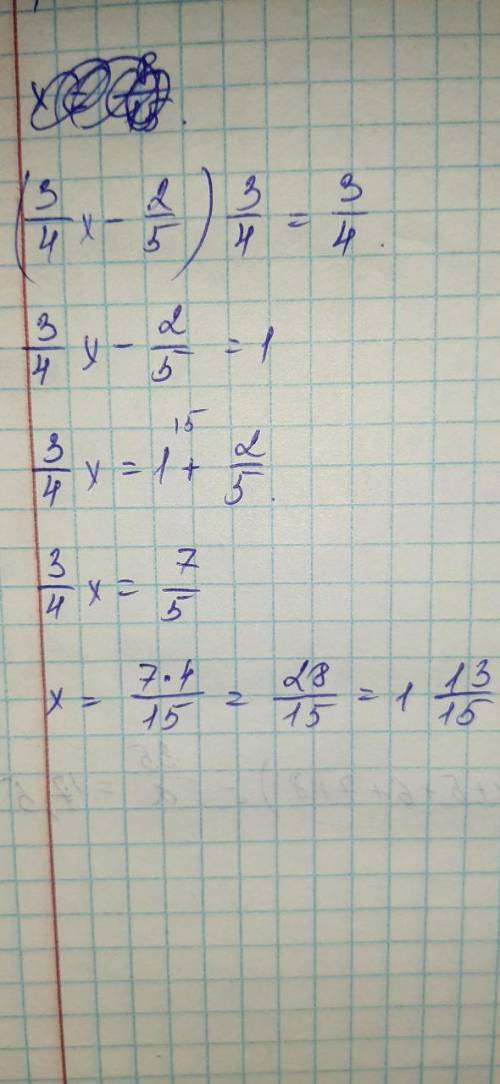 (3/4 x - 2/5) 3/4 = 3/4.
3/4 x - 2/5 = 1
3/4 x = 1 /5 + 2/5.
3/4 x = 7/5
x = 7·4/15 = 28/15 = 1 13/15